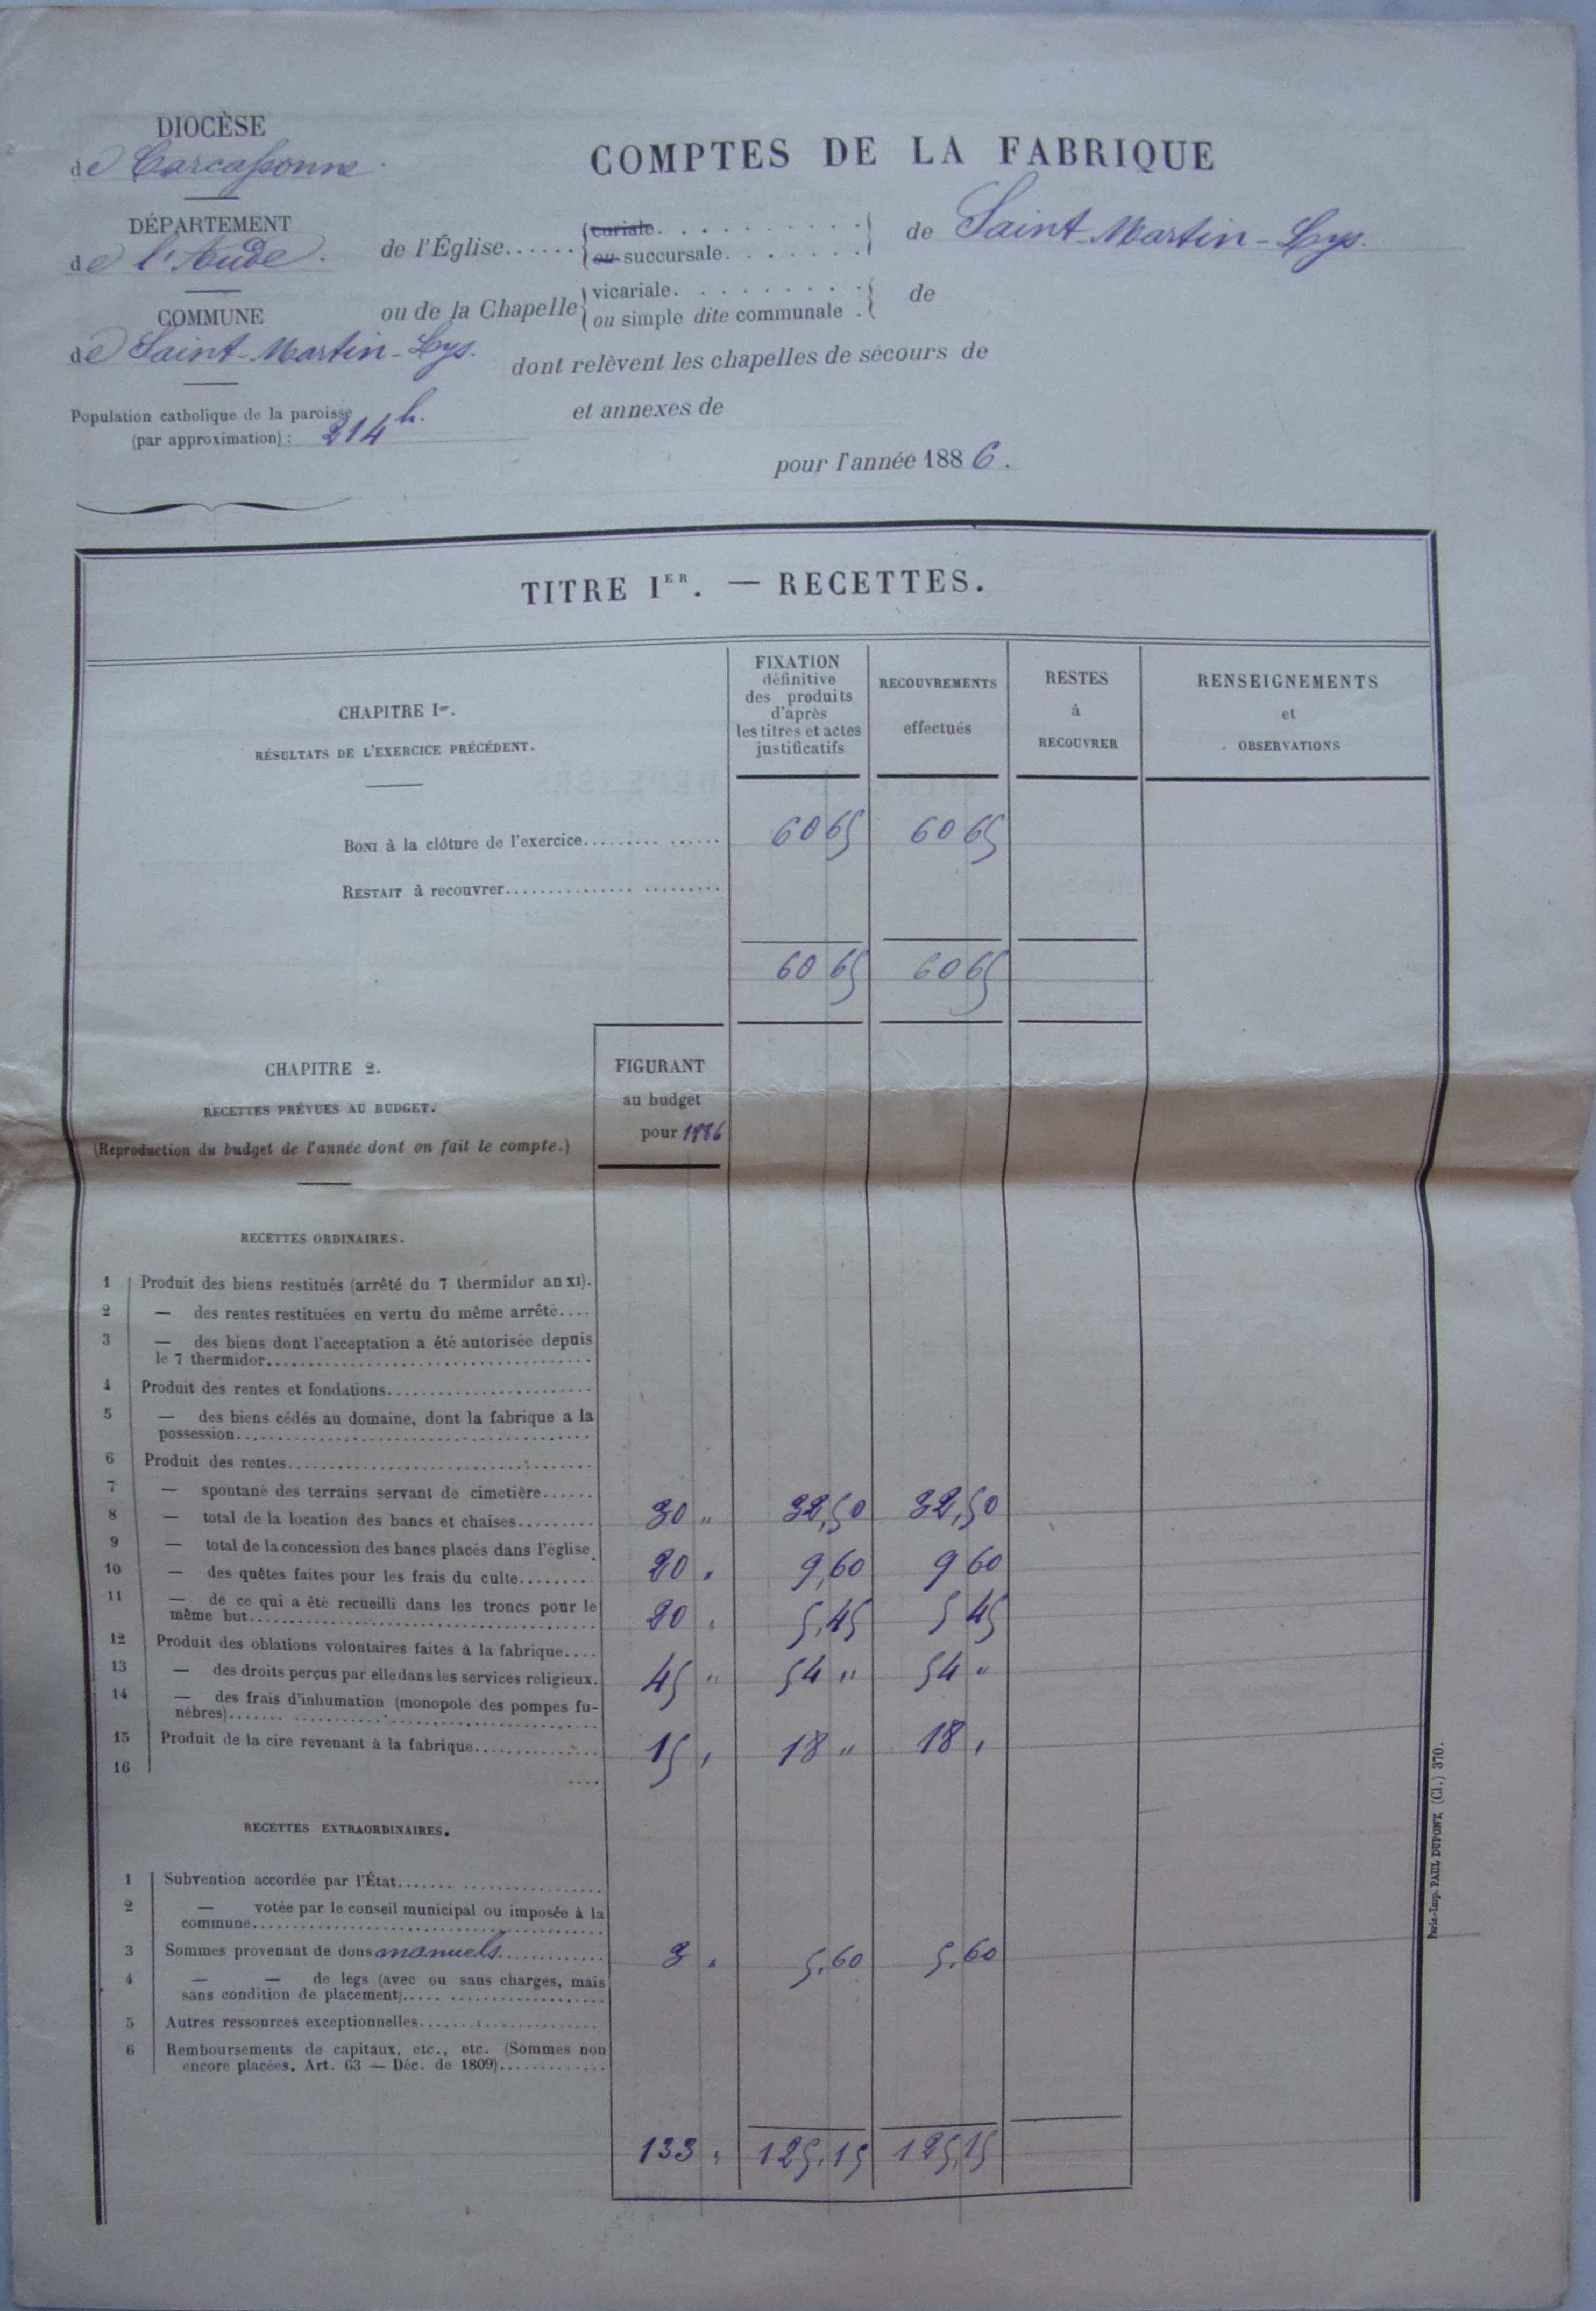 DIOCÈSE
de Carcassonne.
COMPTES DE LA FABRIQUE
DÉPARTEMENT
de l'Aude.
de l'Église......
curiale. . . . . . . . . . .
ou succursale. . . . . . . .
de Saint-Martin-Lys.
COMMUNE
de Saint-Martin-Lys.
ou de la Chapelle
vicariale. . . . . . . . . .
ou simple dite communale .
de
dont relèvent les chapelles de secours de
Population catholique de la paroisse
(par approximation) : 214 h.
et annexes de
pour l'année 1886.
TITRE IER. — RECETTES.
CHAPITRE Ier.
RÉSULTATS DE L'EXERCICE PRÉCÉDENT.
FIXATION
définitive
des produits
d'après
les titres et actes
justificatifs
RECOUVREMENTS
effectués
RESTES
à
RECOUVRER
RENSEIGNEMENTS
et
OBSERVATIONS
BONI à la clôture de l'exercice............... 60 65 60 65
RESTAIT à recouvrer........................
60 65 60 65
CHAPITRE 2.
RECETTES PRÉVUES AU BUDGET.
(Reproduction du budget de l'année dont on fait le compte.)
FIGURANT
au budget
pour 1886
RECETTES ORDINAIRES.
1 Produit des biens restitués (arrêté du 7 thermidor an XI).
2 — des rentes restituées en vertu du même arrêté....
3 — des biens dont l'acceptation a été autorisée depuis
le 7 thermidor........................................
4 Produit des rentes et fondations........................
5 — des biens cédés au domaine, dont la fabrique a la
possession............................................
6 Produit des rentes....................................
7 — spontané des terrains servant de cimetière......
8 — total de la location des bancs et chaises......... 30 " 32,50 32,50
9 — total de la concession des bancs placés dans l'église.
10 — des quêtes faites pour les frais du culte........ 20 " 9,60 9 60
11 — de ce qui a été recueilli dans les troncs pour le
même but............................................ 20 " 5,45 5 45
12 Produit des oblations volontaires faites à la fabrique....
13 — des droits perçus par elle dans les services religieux. 45 " 54 " 54 "
14 — des frais d'inhumation (monopole des pompes fu-
nèbres)............................................
15 Produit de la cire revenant à la fabrique.............. 15 " 18 " 18 "
16 ....
RECETTES EXTRAORDINAIRES.
1 Subvention accordée par l'État........................
2 — votée par le conseil municipal ou imposée à la
commune............................................
3 Sommes provenant de dons manuels............ 3 " 5.60 5.60
4 — — de legs (avec ou sans charges, mais
sans condition de placement)........................
5 Autres ressources exceptionnelles......................
6 Remboursements de capitaux, etc., etc. (Sommes non
encore placées. Art. 63 — Déc. de 1809)..............
133 " 125.15 125.15
Paris.-Imp. PAUL DUPONT, (Cl.) 370.